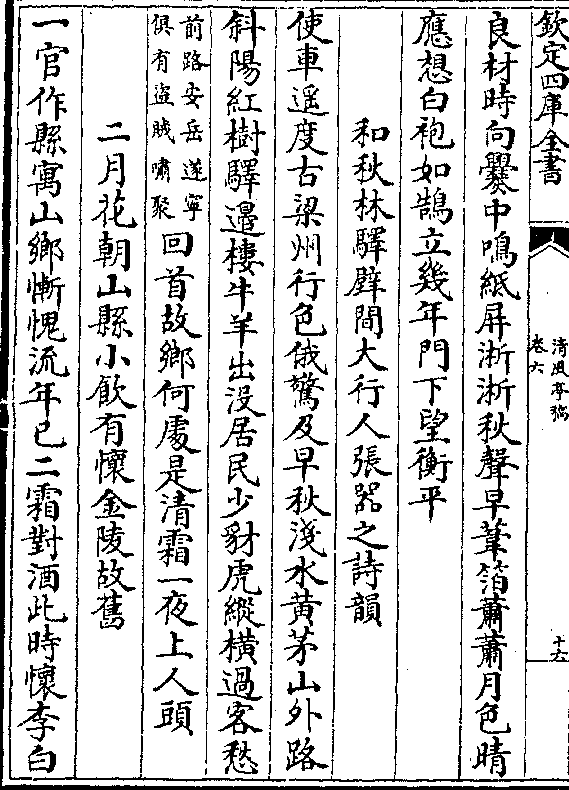 欽定四庫全書
清風亭稿
卷六
十六
良材時向爨中鳴紙屏淅淅秋聲早葦箔蕭蕭月色晴
應想白袍如鵠立幾年門下望衡平
和秋林驛壁間大行人張器之詩韻
使車遥度古梁州行色俄驚及早秋淺水黄茅山外路
斜陽紅樹驛邉樓牛羊出没居民少豺虎縱横過客愁
前路安岳遂寧
俱有盗賊嘯聚
回首故鄉何處是清霜一夜上人頭
二月花朝山縣小飲有懷金陵故舊
一官作縣寓山鄉慚愧流年已二霜對酒此時懷李白